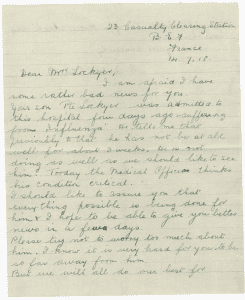 23 Casualty Clearing Station
B.E.F
France
14.7.18
Dear Mrs Lockyer,
I am afraid I have
some rather bad news for you.
Your son Pte Lockyer was admitted to
this hospital four days ago suffering
from Influenza. He tells me that
previously to that he has not been at all
well for about 3 weeks. He is not
doing as well as we should like to see
him. Today the Medical Officer thinks
his condition critical.
I should like to assure you that
everything possible is being done for
him & I hope to be able to give you better
news in a few days
Please try not to worry too much about
him. I know it is very hard for you to be
so far away from him
But we will all do our best for